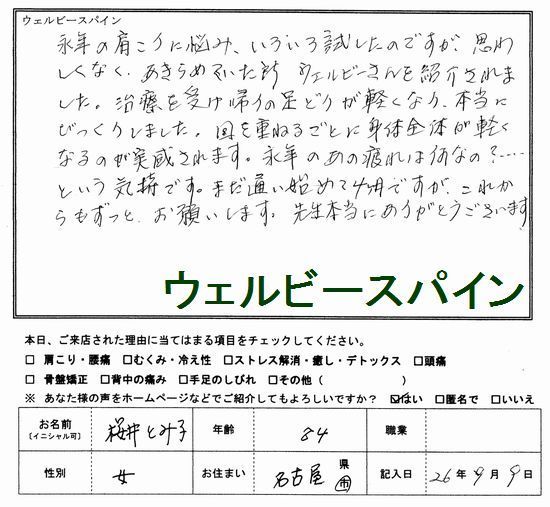 ウェルビースパイン
永年の肩こりに悩み、いろいろ試したのですが、思わ
しくなく、あきらめていた所 ウェルビーさんを紹介されま
した。治療を受け帰りの足どりが軽くなり、本当に
びっくりしました。回を重ねるごとに身体全体が軽く
なるのが実感されます。永年のあの疲れは何なの?‥‥
という気持です。まだ通い始めて4ヶ月ですが、これか
らもずっと、お願いします。先生本当にありがとうございます
ウェルビースパイン
本日、ご来店された理由に当てはまる項目をチェックしてください。
□ 肩こり・腰痛 □むくみ・冷え性 □ストレス解消・癒し・デトックス □頭痛
□ 骨盤矯正 □背中の痛み □手足のしびれ □その他( )
※ あなた様の声をホームページなどでご紹介してもよろしいですか? ☑はい □匿名で □いいえ
お名前 [イニシャル可] 桜井とみ子 年齢 84 職業
性別 女 お住まい 名古屋 県 市 記入日 26年9月9日